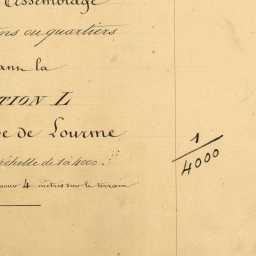 d'assemblage
ou quartiers
dans la
TION L
de Lourme
échelle de 1 à 4000
pour 4 mètres sur le terrain
1
4000